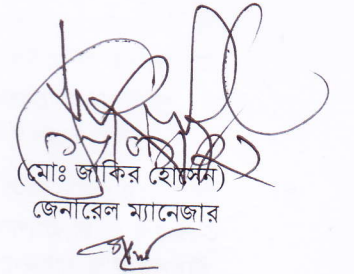 (মোঃ জাকির হোসেন)
জেনারেল ম্যানেজার